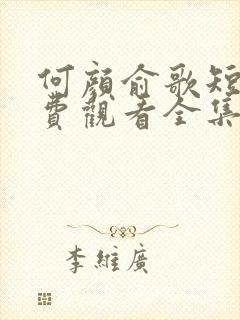 何顏俞歌短
費觀看全集
李維廣